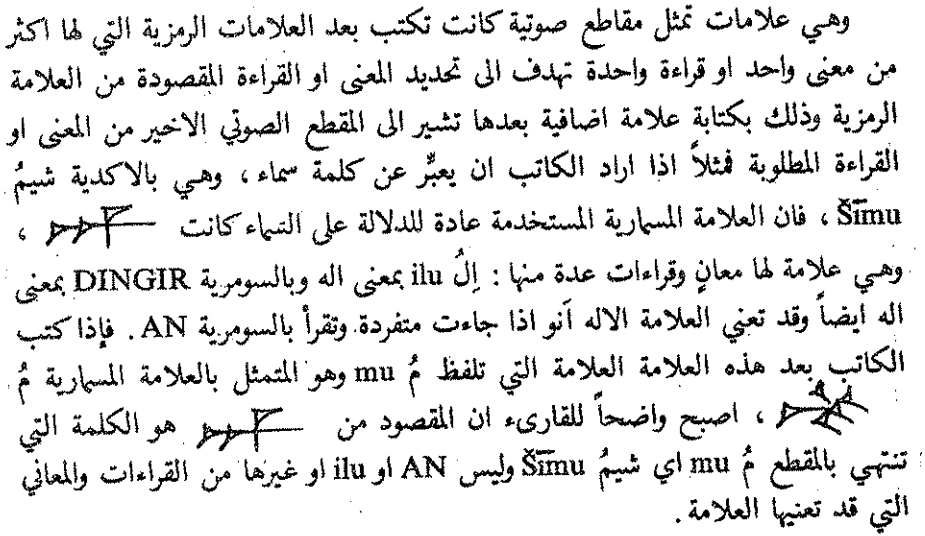 وهي علامات تمثل مقاطع صوتية كانت تكتب بعد العلامات الرمزية التي لها اكثر
من معنى واحد او قراءة واحدة تهدف الى تحديد المعنى او القراءة المقصودة من العلامة
الرمزية وذلك بكتابة علامة اضافية بعدها تشير الى المقطع الصوتي الاخير من المعنى او
القراءة المطلوبة فمثلاً اذا اراد الكاتب ان يعبِّر عن كلمة سماء ، وهي بالاكدية شيمُ
Šīmu ، فان العلامة المسمارية المستخدمة عادة للدلالة على السماء كانت 𒀭 ،
وهي علامة لها معانٍ وقراءات عدة منها : اِلُ ilu بمعنى اله وبالسومرية DINGIR بمعنى
اله ايضاً وقد تعني العلامة الاله اَنو اذا جاءت متفردة وتقرأ بالسومرية AN . فإذا كتب
الكاتب بعد هذه العلامة العلامة التي تلفظ مُ mu وهو المتمثل بالعلامة المسمارية مُ
𒈬 ، اصبح واضحاً للقارىء ان المقصود من 𒀭 هو الكلمة التي
تنتهي بالمقطع مُ mu اي شيمُ Šīmu وليس AN او ilu او غيرها من القراءات والمعاني
التي قد تعنيها العلامة .